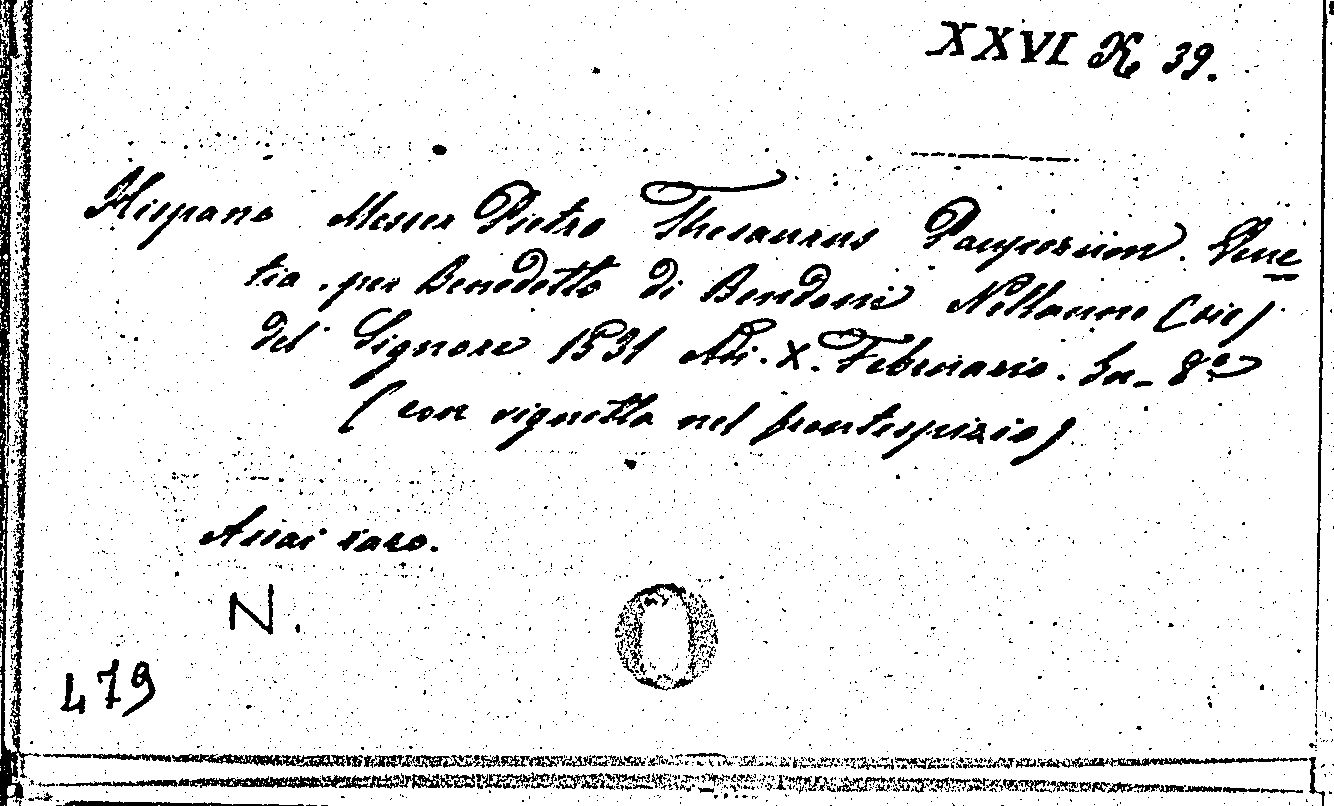 XXVI K 39.
Hispano Messer Pietro Thesaurus Pauperum. Vene=
tia. per Benedetto di Bendoni Nellanno (sic)
del Signore 1531 Adi. X. Februario. In-8º
(con vignetta nel frontespizio)
Assai raro.
N.
479